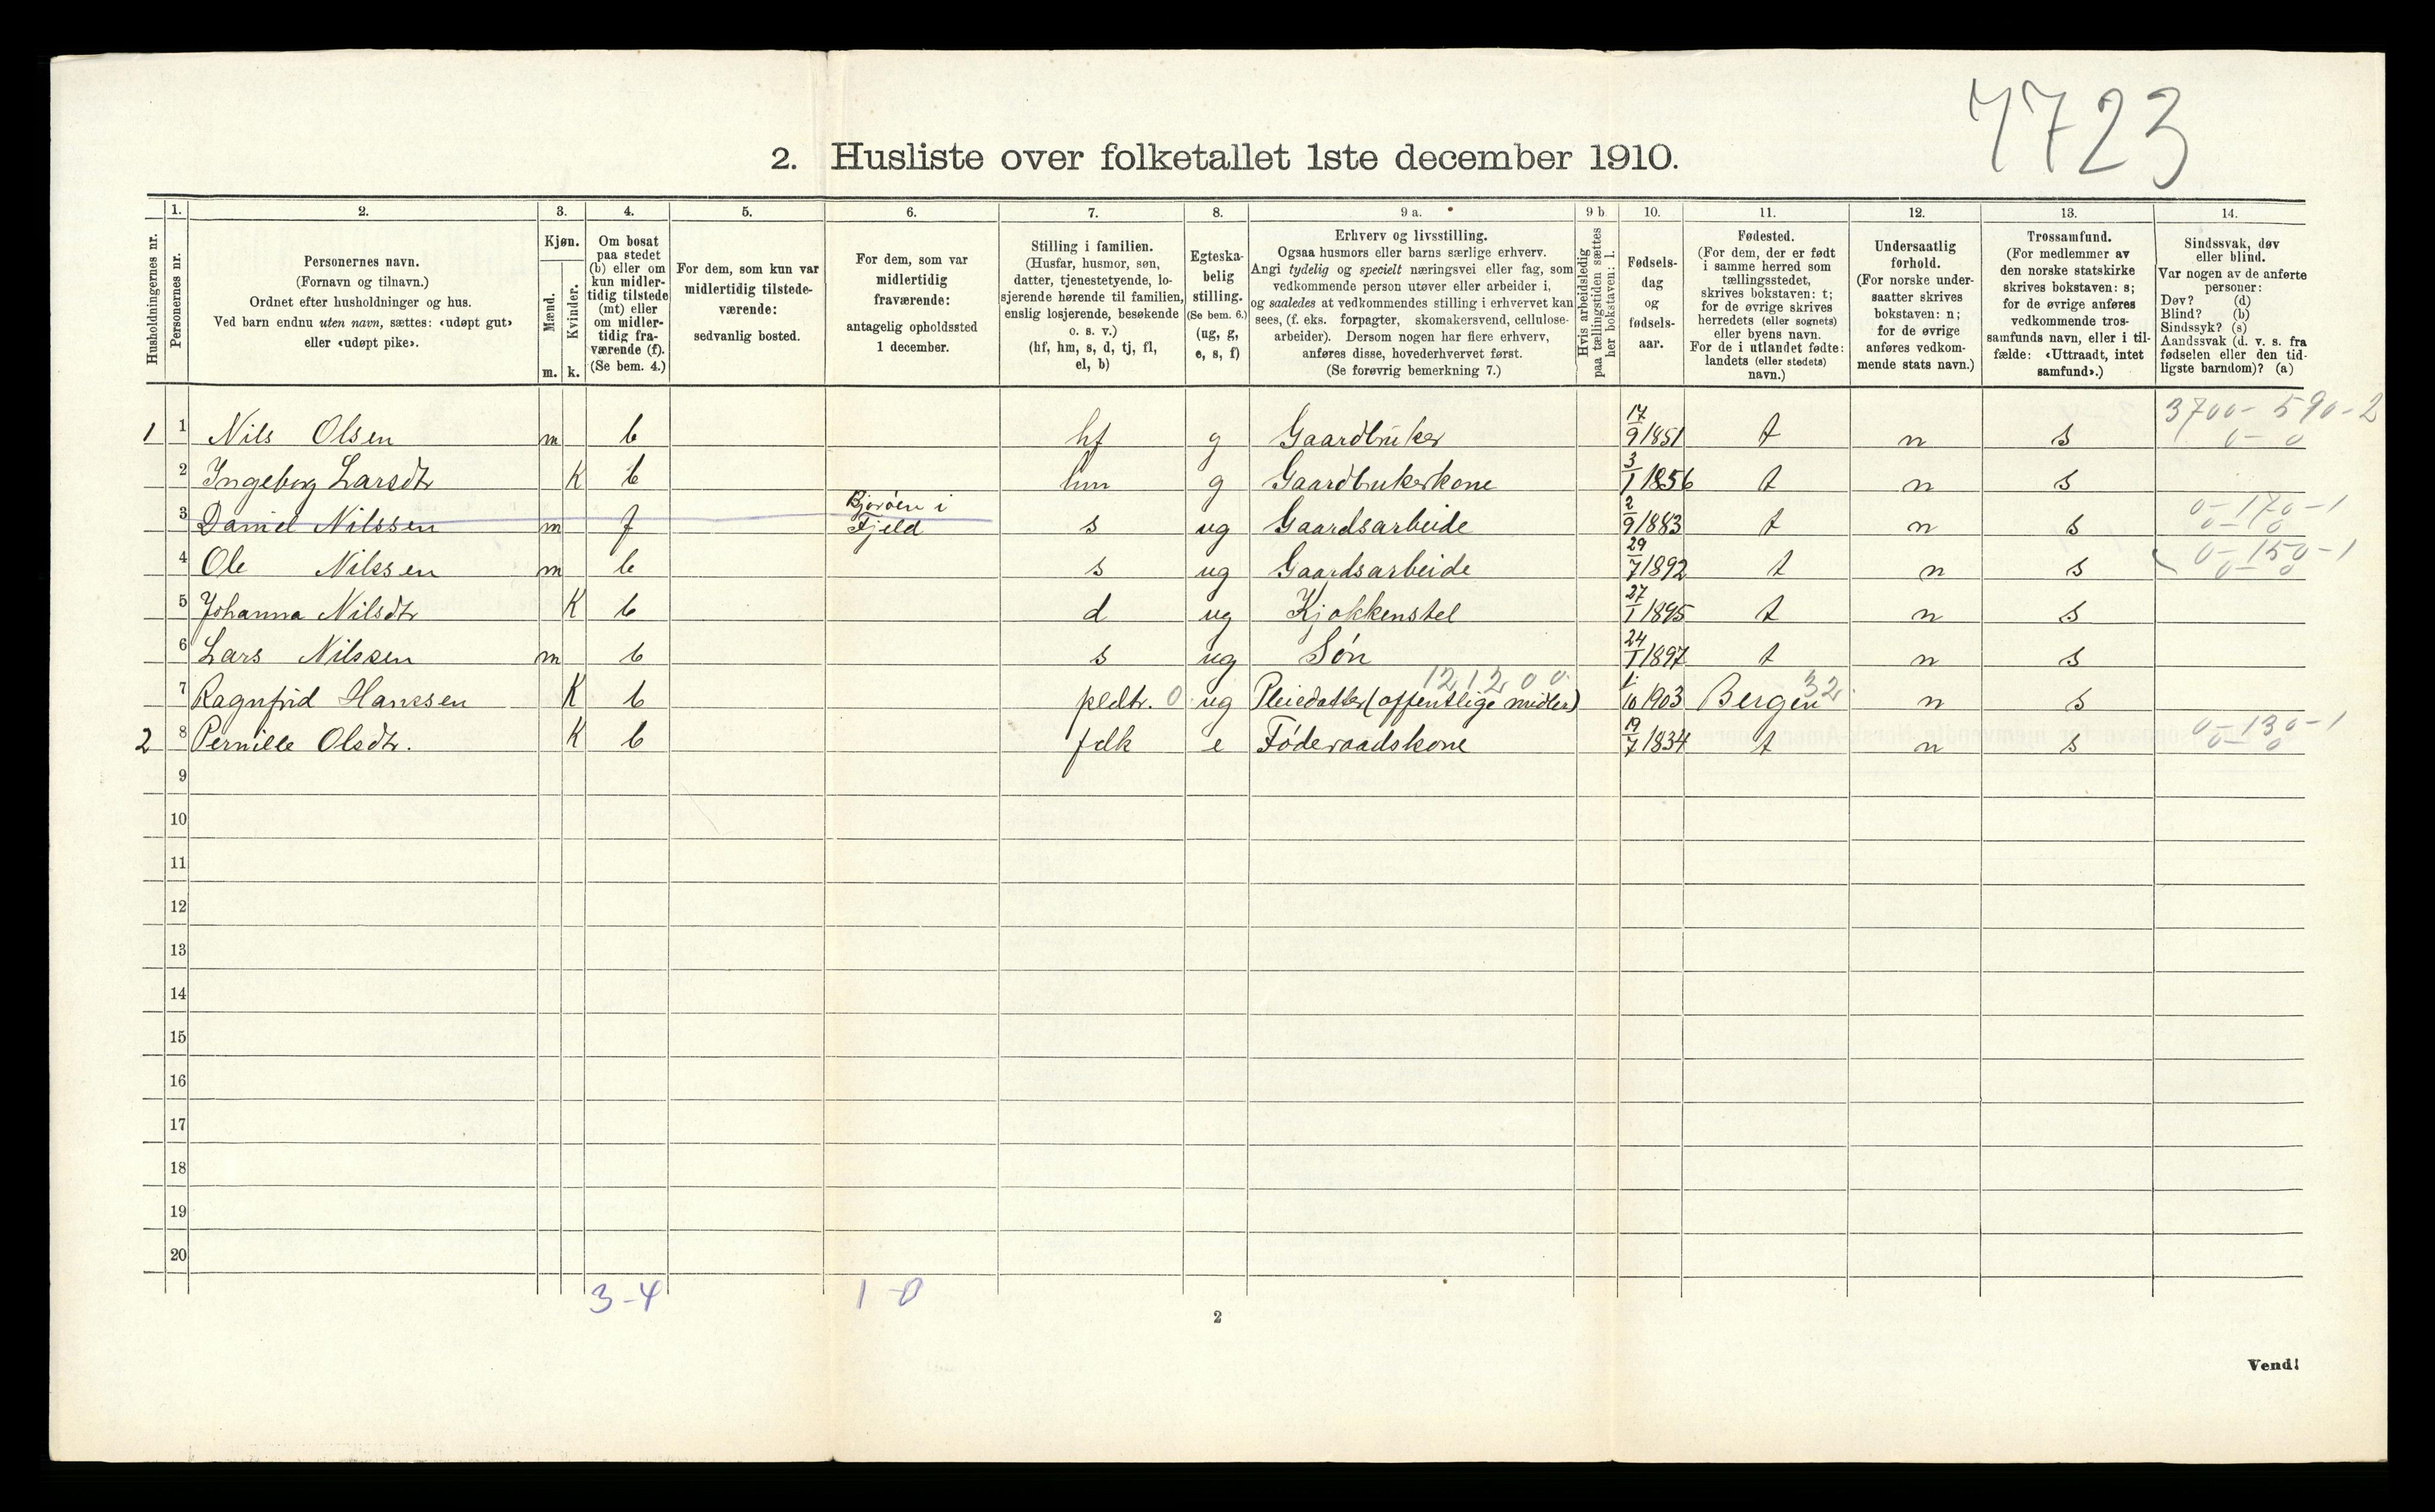 7723
2. Husliste over folketallet 1ste december 1910.
Husholdningernes nr.
1. Personernes nr.
2. Personernes navn.
(Fornavn og tilnavn.)
Ordnet efter husholdninger og hus.
Ved barn endnu uten navn, sættes: «udøpt gut»
eller «udøpt pike».
3. Kjøn.
Mænd. m.
Kvinder. k.
4. Om bosat
paa stedet
(b) eller om
kun midler-
tidig tilstede
(mt) eller
om midler-
tidig fra-
værende (f).
(Se bem. 4.)
5. For dem, som kun var
midlertidig tilstede-
værende:
sedvanlig bosted.
6. For dem, som var
midlertidig
fraværende:
antagelig opholdssted
1 december.
7. Stilling i familien.
(Husfar, husmor, søn,
datter, tjenestetyende, lo-
sjerende hørende til familien,
enslig losjerende, besøkende
o. s. v.)
(hf, hm, s, d, tj, fl,
el, b)
8. Egteska-
belig
stilling.
(Se bem. 6.)
(ug, g,
e, s, f)
9 a. Erhverv og livsstilling.
Ogsaa husmors eller barns særlige erhverv.
Angi tydelig og specielt næringsvei eller fag, som
vedkommende person utøver eller arbeider i,
og saaledes at vedkommendes stilling i erhvervet kan
sees, (f. eks. forpagter, skomakersvend, cellulose-
arbeider). Dersom nogen har flere erhverv,
anføres disse, hovederhvervet først.
(Se forøvrig bemerkning 7.)
9 b. Hvis arbeidsledig
paa tællingstiden sættes
her bokstaven: l.
10. Fødsels-
dag
og
fødsels-
aar.
11. Fødested.
(For dem, der er født
i samme herred som
tællingsstedet,
skrives bokstaven: t;
for de øvrige skrives
herredets (eller sognets)
eller byens navn.
For de i utlandet fødte:
landets (eller stedets)
navn.)
12. Undersaatlig
forhold.
(For norske under-
saatter skrives
bokstaven: n;
for de øvrige
anføres vedkom-
mende stats navn.)
13. Trossamfund.
(For medlemmer av
den norske statskirke
skrives bokstaven: s;
for de øvrige anføres
vedkommende tros-
samfunds navn, eller i til-
fælde: «Uttraadt, intet
samfund».)
14. Sindssvak, døv
eller blind.
Var nogen av de anførte
personer:
Døv? (d)
Blind? (b)
Sindssyk? (s)
Aandssvak (d. v. s. fra
fødselen eller den tid-
ligste barndom)? (a)
1 1 Nils Olsen m b hf g Gaardbruker 17/9 1851 t n s 3700 - 590 - 2
0 - 0
2 Ingeborg Larsdtr K b hm g Gaardbrukerkone 3/1 1856 t n s
3 Daniel Nilssen m f Bjorøen i
Fjeld s ug Gaardsarbeide 2/9 1883 t n s 0 - 170 - 1
0 - 0
4 Ole Nilssen m b s ug Gaardsarbeide 29/7 1892 t n s 0 - 150 - 1
0 - 0
5 Johanna Nilsdtr K b d ug Kjøkkenstel 27/1 1895 t n s
6 Lars Nilssen m b s ug Søn 24/1 1897 t n s
12 12 00 32
7 Ragnfrid Hanssen K b pldtr. 0 ug Pleiedatter (offentlige midler) 1/10 1903 Bergen n s
2 8 Pernille Olsdtr. K b fdk e Føderaadskone 19/7 1834 t n s 0 - 130 - 1
0 - 0
9
10
11
12
13
14
15
16
17
18
19
20
3 - 4 1 - 0
2
Vend!